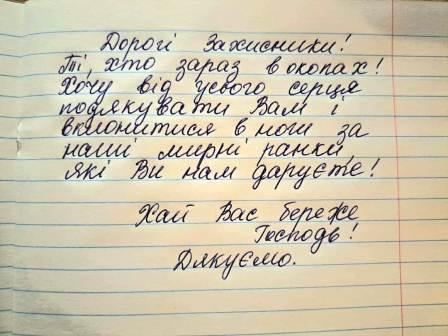 Дорогі Захисники!
Ті, хто зараз в окопах!
Хочу від усього серця
подякувати Вам і
вклонитися в ноги за
наші мирні ранки,
які Ви нам даруєте!
Хай Вас береже
Господь!
Дякуємо.